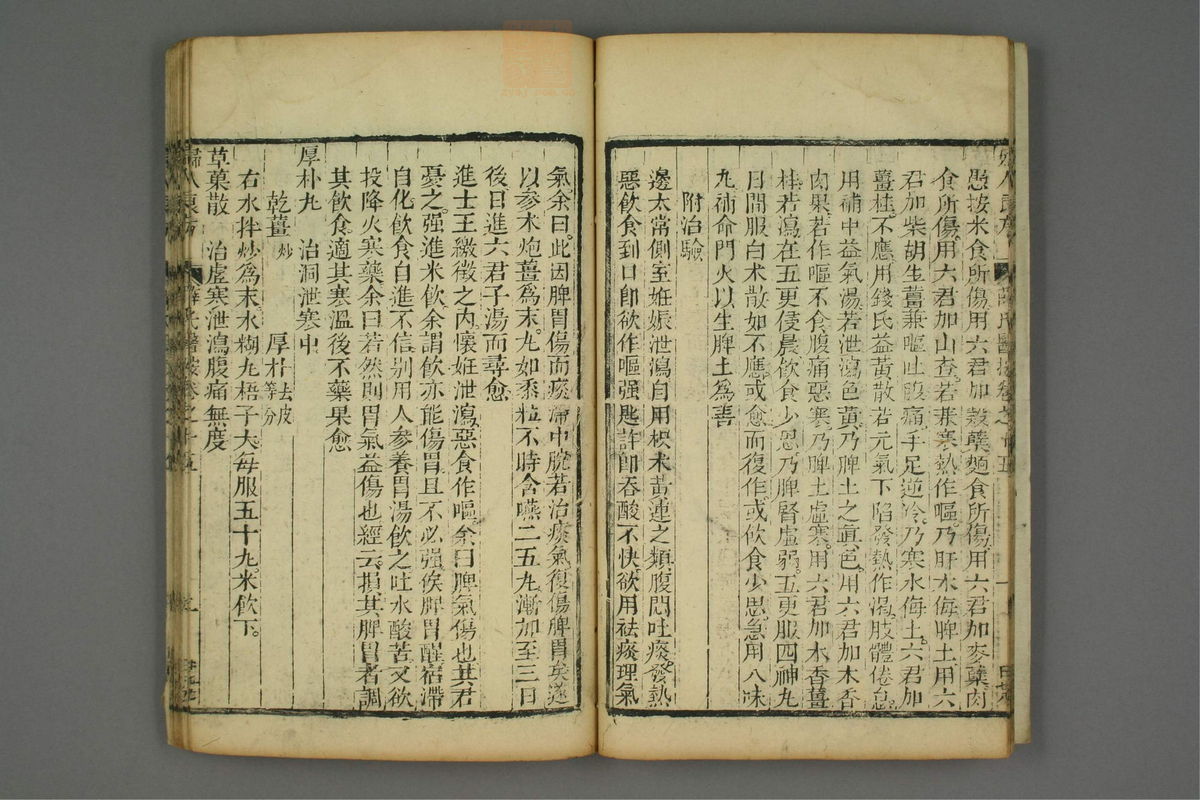 愚按米食所傷用六君加穀蘖麵食所傷用六君加麥蘖肉
食所傷用六君加山查若兼寒熱作嘔乃肝木侮脾土用六
君加柴胡生薑兼嘔吐腹痛手足逆冷乃寒水侮土六君加
薑桂不應用錢氏益黃散若元氣下陷發熱作渴肢體倦怠
用補中益氣湯若泄瀉色黃乃脾土之眞色用六君加木香
肉果若作嘔不食腹痛惡寒乃脾土虛寒用六君加木香薑
桂若瀉在五更侵晨飲食少思乃脾腎虛弱五更服四神丸
日間服白术散如不應或愈而復作或飲食少思急用八味
丸補命門火以生脾土爲善
附治驗
邊太常側室妊娠泄瀉自用枳术黃連之類腹悶吐痰發熱
惡飲食到口卽欲作嘔强匙許卽吞酸不快欲用祛痰理氣
氣余曰此因脾胃傷而痰滯中脘若治痰氣復傷脾胃矣遂
以參术炮薑爲末丸如黍粒不時含嚥二五丸漸加至三日
後日進六君子湯而尋愈
進士王繳徵之內懷妊泄瀉惡食作嘔余曰脾氣傷也其君
憂之强進米飲余謂飲亦能傷胃且不必强俟脾胃醒宿滯
自化飲食自進不信别用人參養胃湯飲之吐水酸苦又欲
投降火寒藥余曰若然則胃氣益傷也經云損其脾胃者調
其飲食適其寒溫後不藥果愈
厚朴丸　治洞泄寒中
乾薑炒　厚朴去皮等分
右水拌炒爲末水糊丸梧子大每服五十丸米飲下
草菓散　治虛寒泄瀉腹痛無度